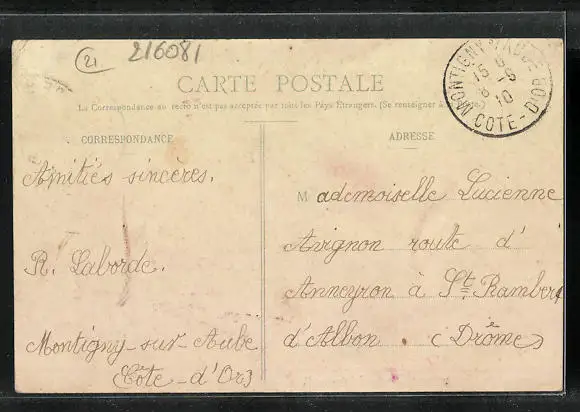 21
216081
CARTE POSTALE
La Correspondance au recto n'est pas acceptée par tous les Pays Etrangers. (Se renseigner à la Poste)
MONTIGNY S. AUBE
15
6 - 6
10
COTE-D'OR
CORRESPONDANCE
ADRESSE
Amitiés sincères.
R. Laborde.
Montigny-sur-Aube
(Côte-d'Or)
Mademoiselle Lucienne
Avignon route d'
Anneyron à St Rambert
d'Albon (Drôme)